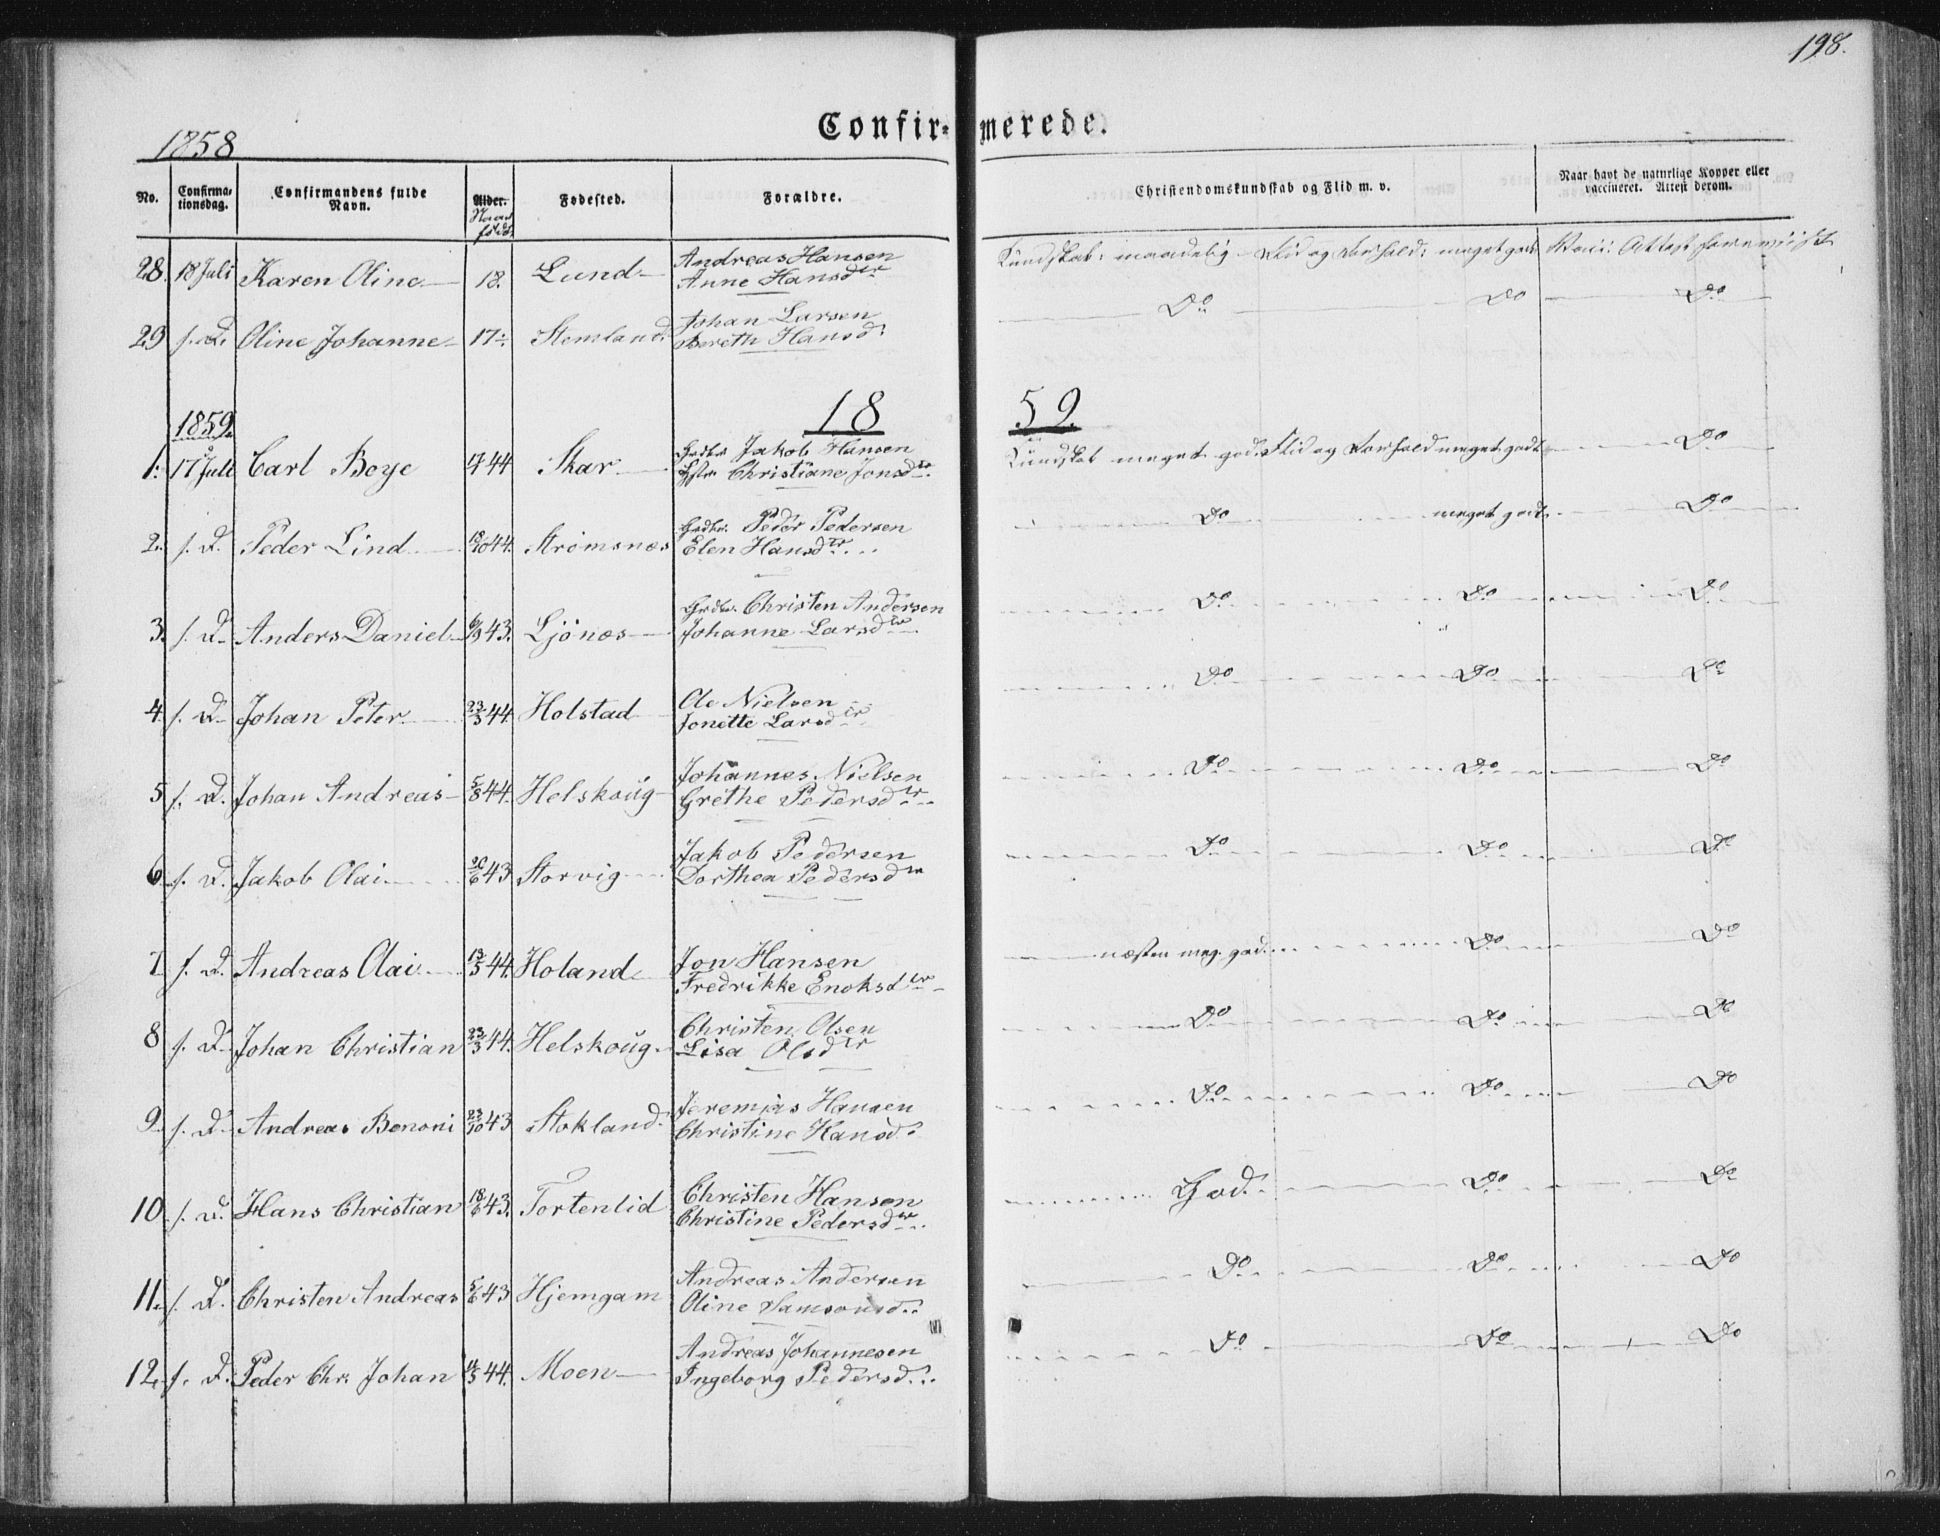 198.
Confirmerede.
1858
No. Confirmationsdag. Confirmandens fulde Navn. Alder. Naar født Fødested. Forældre. Christendomskundskab og Flid m. v. Naar havt de naturlige Kopper eller vaccineret. Attest derom.
Andreas Hansen Kundskab: maadelig – Flid og Forhold: meget godt Vacc: Attest foreviist
28. 18 Juli Karen Oline 18. Lund Anne Hansdtr
Johan Larsen Do Do Do
29 s. D. Oline Johanne 17 Stemland Bereth Hansd:
1859. 1859.
Grdbr. Jakob Hansen Kundskab meget god. Flid og Forhold meget godt Do
1. 17 Juli Carl Boye 44 Skar Hstr. Christiane Jonsdtr.
Grdbr. Peder Pedersen Do meget godt Do
2. s. D. Peder Lind 18/10 44. Strømsnæs Elen Hansdtr.
Grdbr. Christen Andersen Do Do Do
3. s. D. Anders Daniel 6/9 43. Ljønæs Johanne Larsdtr
Ole Nielsen Do Do Do
4. s. D. Johan Peter 23/3 44. Holstad Jonette Larsdtr
Johannes Nielsen Do Do Do
5 s. D. Johan Andreas 5/8 44. Helskoug Grethe Pedersdtr
Jakob Pedersen Do Do Do
6. s. D. Jakob Olai 20/6 43 Storvig Dorthea Pedersdtr
Jon Hansen næsten meg. god. Do Do
7 s. D. Andreas Olai 13/5 44. Holand Fredrikke Enoksdtr
Christen Olsen Do Do Do
8 s. D. Johan Christian 23/3 44. Helskoug Lisa Olsdtr
Jeremias Hansen Do Do Do
9. s. D. Andreas Benoni 23/10 43 Stokland Christine Hansd:
Christen Hansen God. Do Do
10. s. D. Hans Christian 18/6 43. Tortenlid Christine Pedersdtr.
Andreas Andersen Do Do Do
11. s. D. Christen Andreas 5/6 43 Hjemgam Oline Samsonsd.
Andreas Johannesen Do Do Do
12. s. D. Peder Chr. Johan 44. Moen Ingeborg Pedersd.